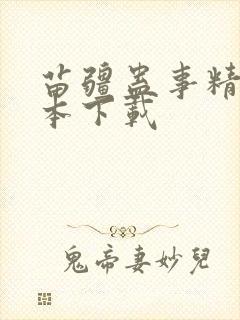 苗疆蛊事精
本下载
鬼帝妻妙兒